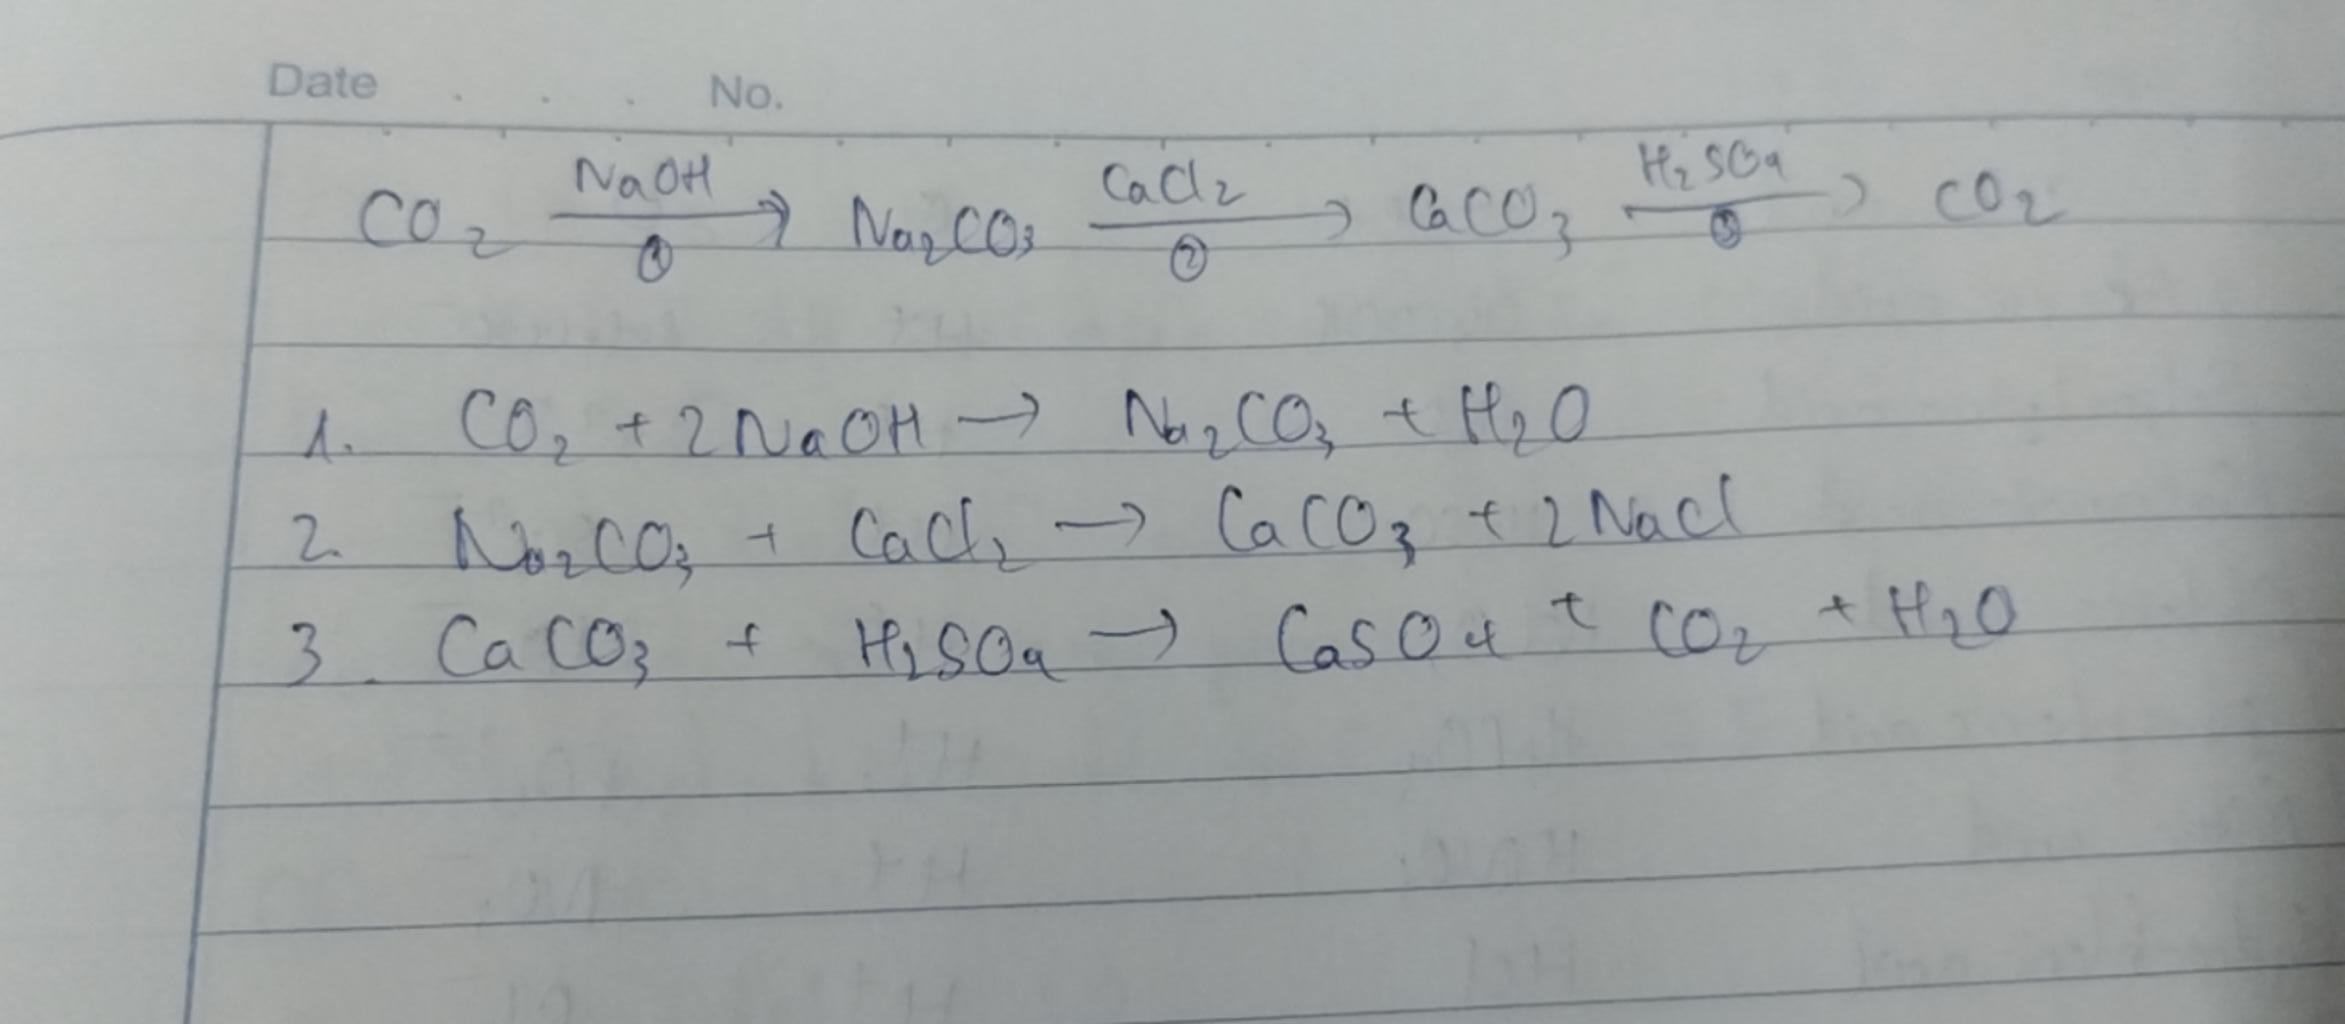 Date . . . No.
CO₂ —NaOH→ ① Na₂CO₃ —CaCl₂→ ② CaCO₃ —H₂SO₄→ ③ CO₂
1. CO₂ + 2NaOH → Na₂CO₃ + H₂O
2. Na₂CO₃ + CaCl₂ → CaCO₃ + 2NaCl
3. CaCO₃ + H₂SO₄ → CaSO₄ + CO₂ + H₂O